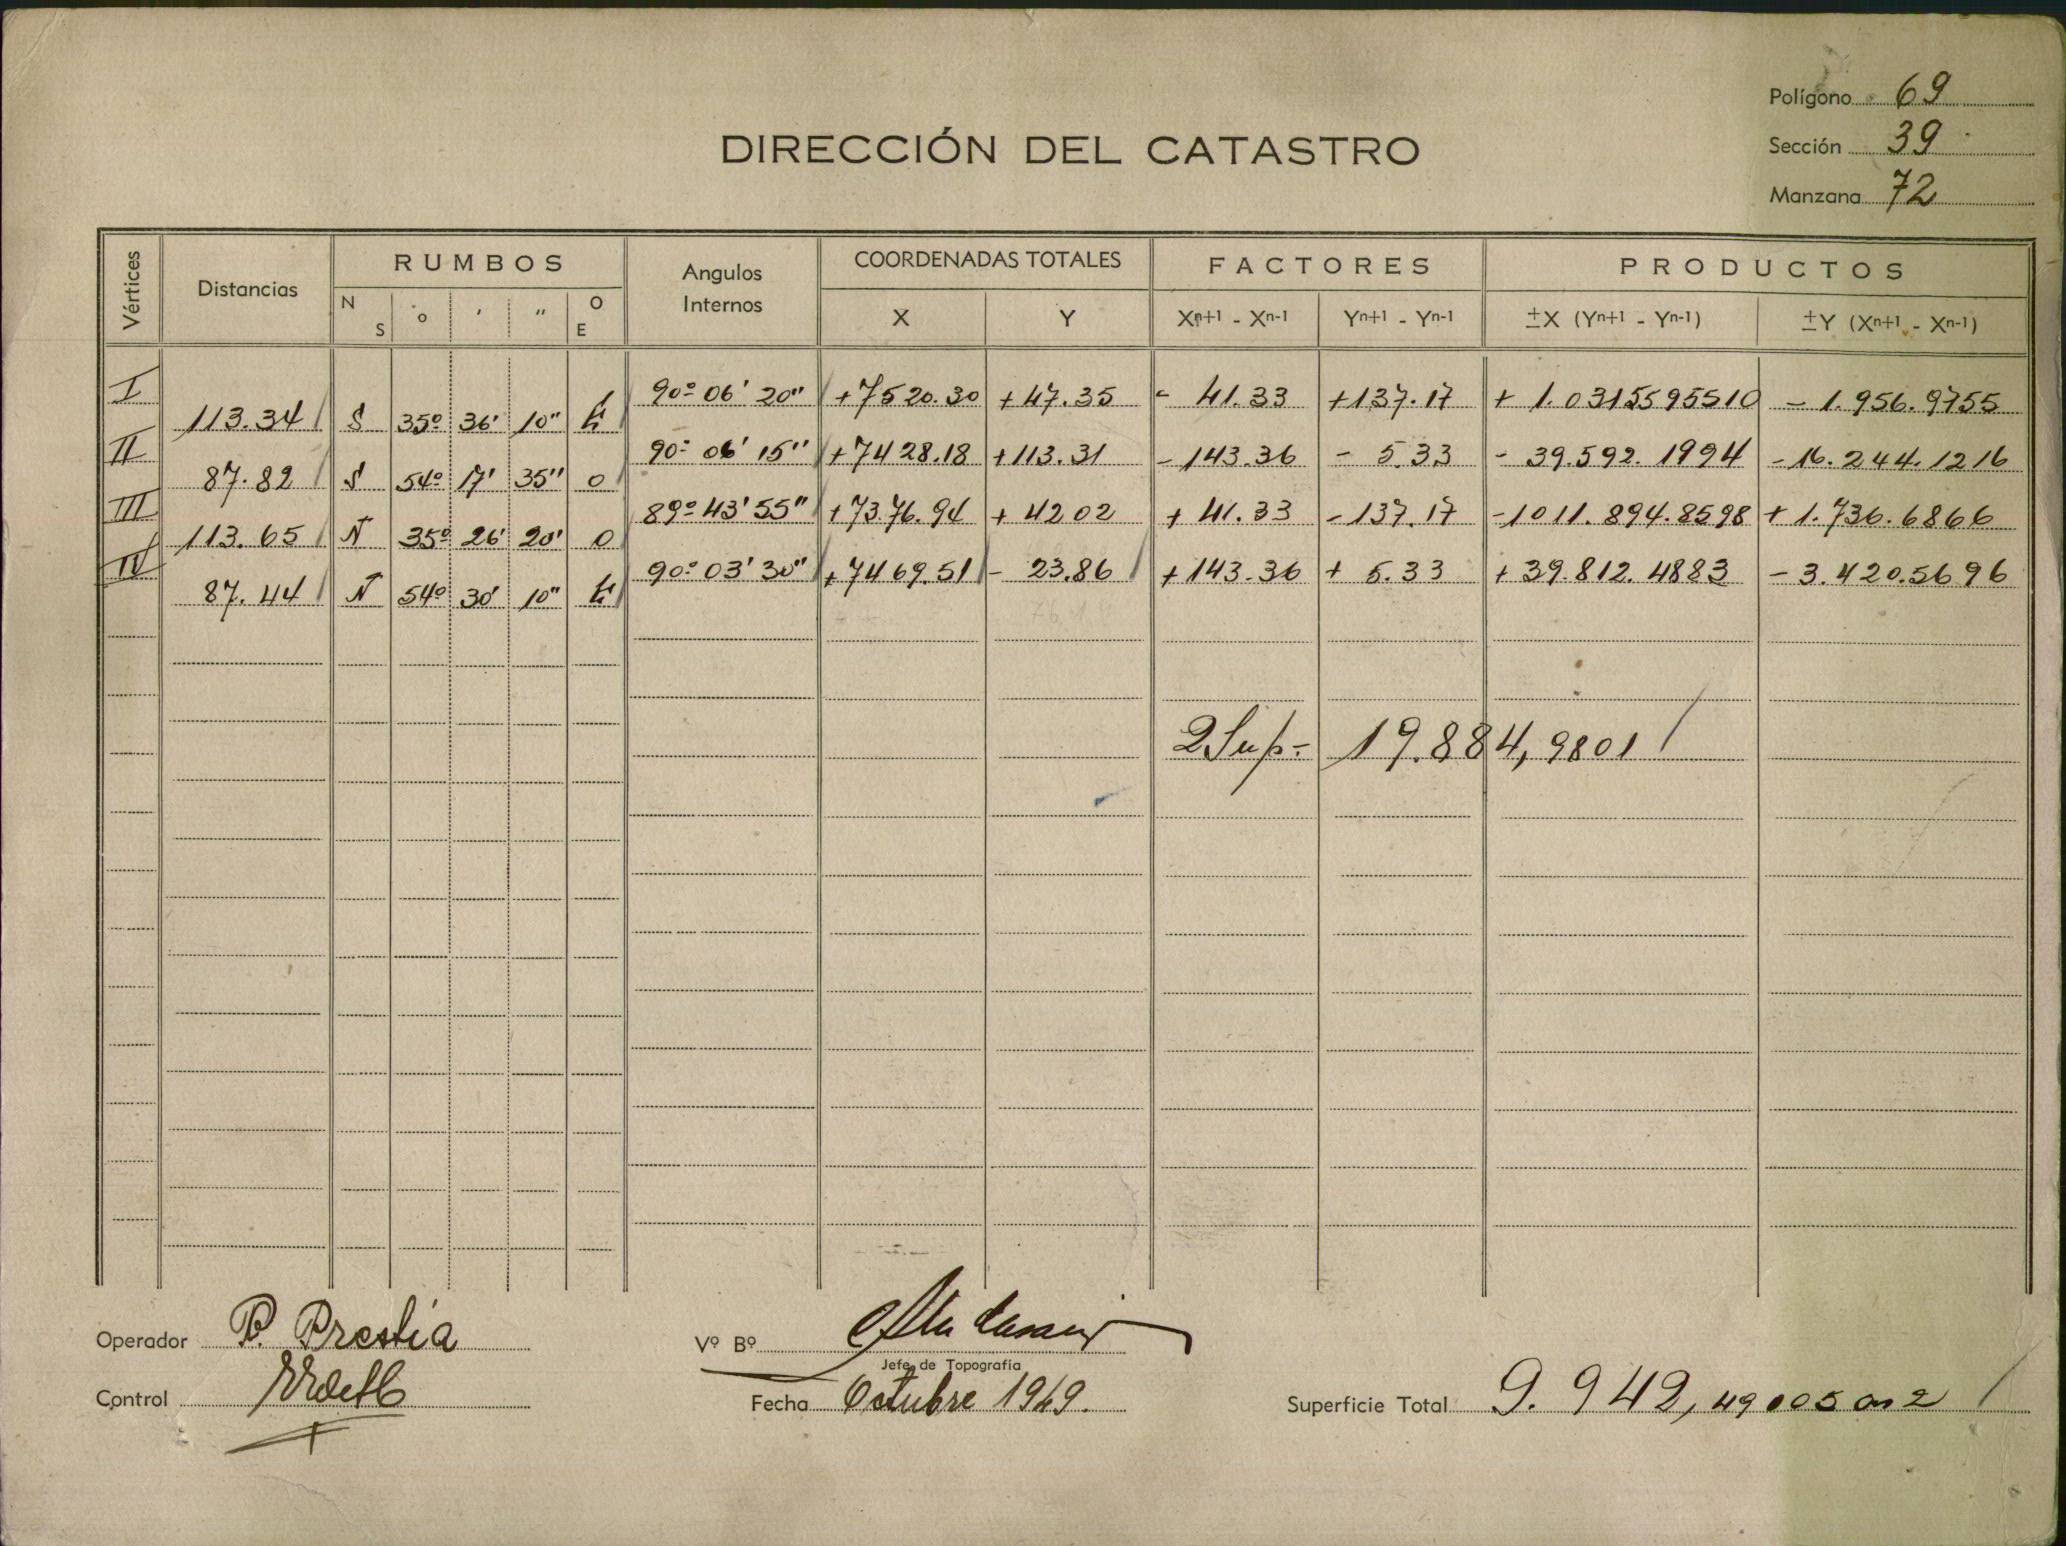 Polígono 69
DIRECCIÓN DEL CATASTRO
Sección 39
Manzana 72
Vértices Distancias RUMBOS Angulos Internos COORDENADAS TOTALES FACTORES PRODUCTOS
N S ° ' " O E X Y Xn+1 - Xn-1 Yn+1 - Yn-1 ±X (Yn+1 - Yn-1) ±Y (Xn+1 - Xn-1)
I 90º 06' 20" +7520.30 +47.35 - 41.33 +137.17 + 1.0315595510 - 1.956.9755
113.34 S 35º 36' 10" E
II 90º 06' 15" +7428.18 +113.31 - 143.36 - 5.33 - 39.592.1994 - 16.244.1216
87.82 S 54º 17' 35" O
III 89º 43' 55" +7376.94 + 42 02 + 41.33 - 137.17 - 1011.894.8598 + 1.736.6866
113.65 N 35º 26' 20' O
IV 90º 03' 30" +7469.51 - 23.86 + 143.36 + 5.33 + 39.812.4883 - 3.420.5696
87.44 N 54º 30' 10" E
2 Sup = 19.884,9801
Operador P. Prestia
Vº Bº
Jefe de Topografía
Control
Fecha Octubre 1949.
Superficie Total 9.942,49005 m2